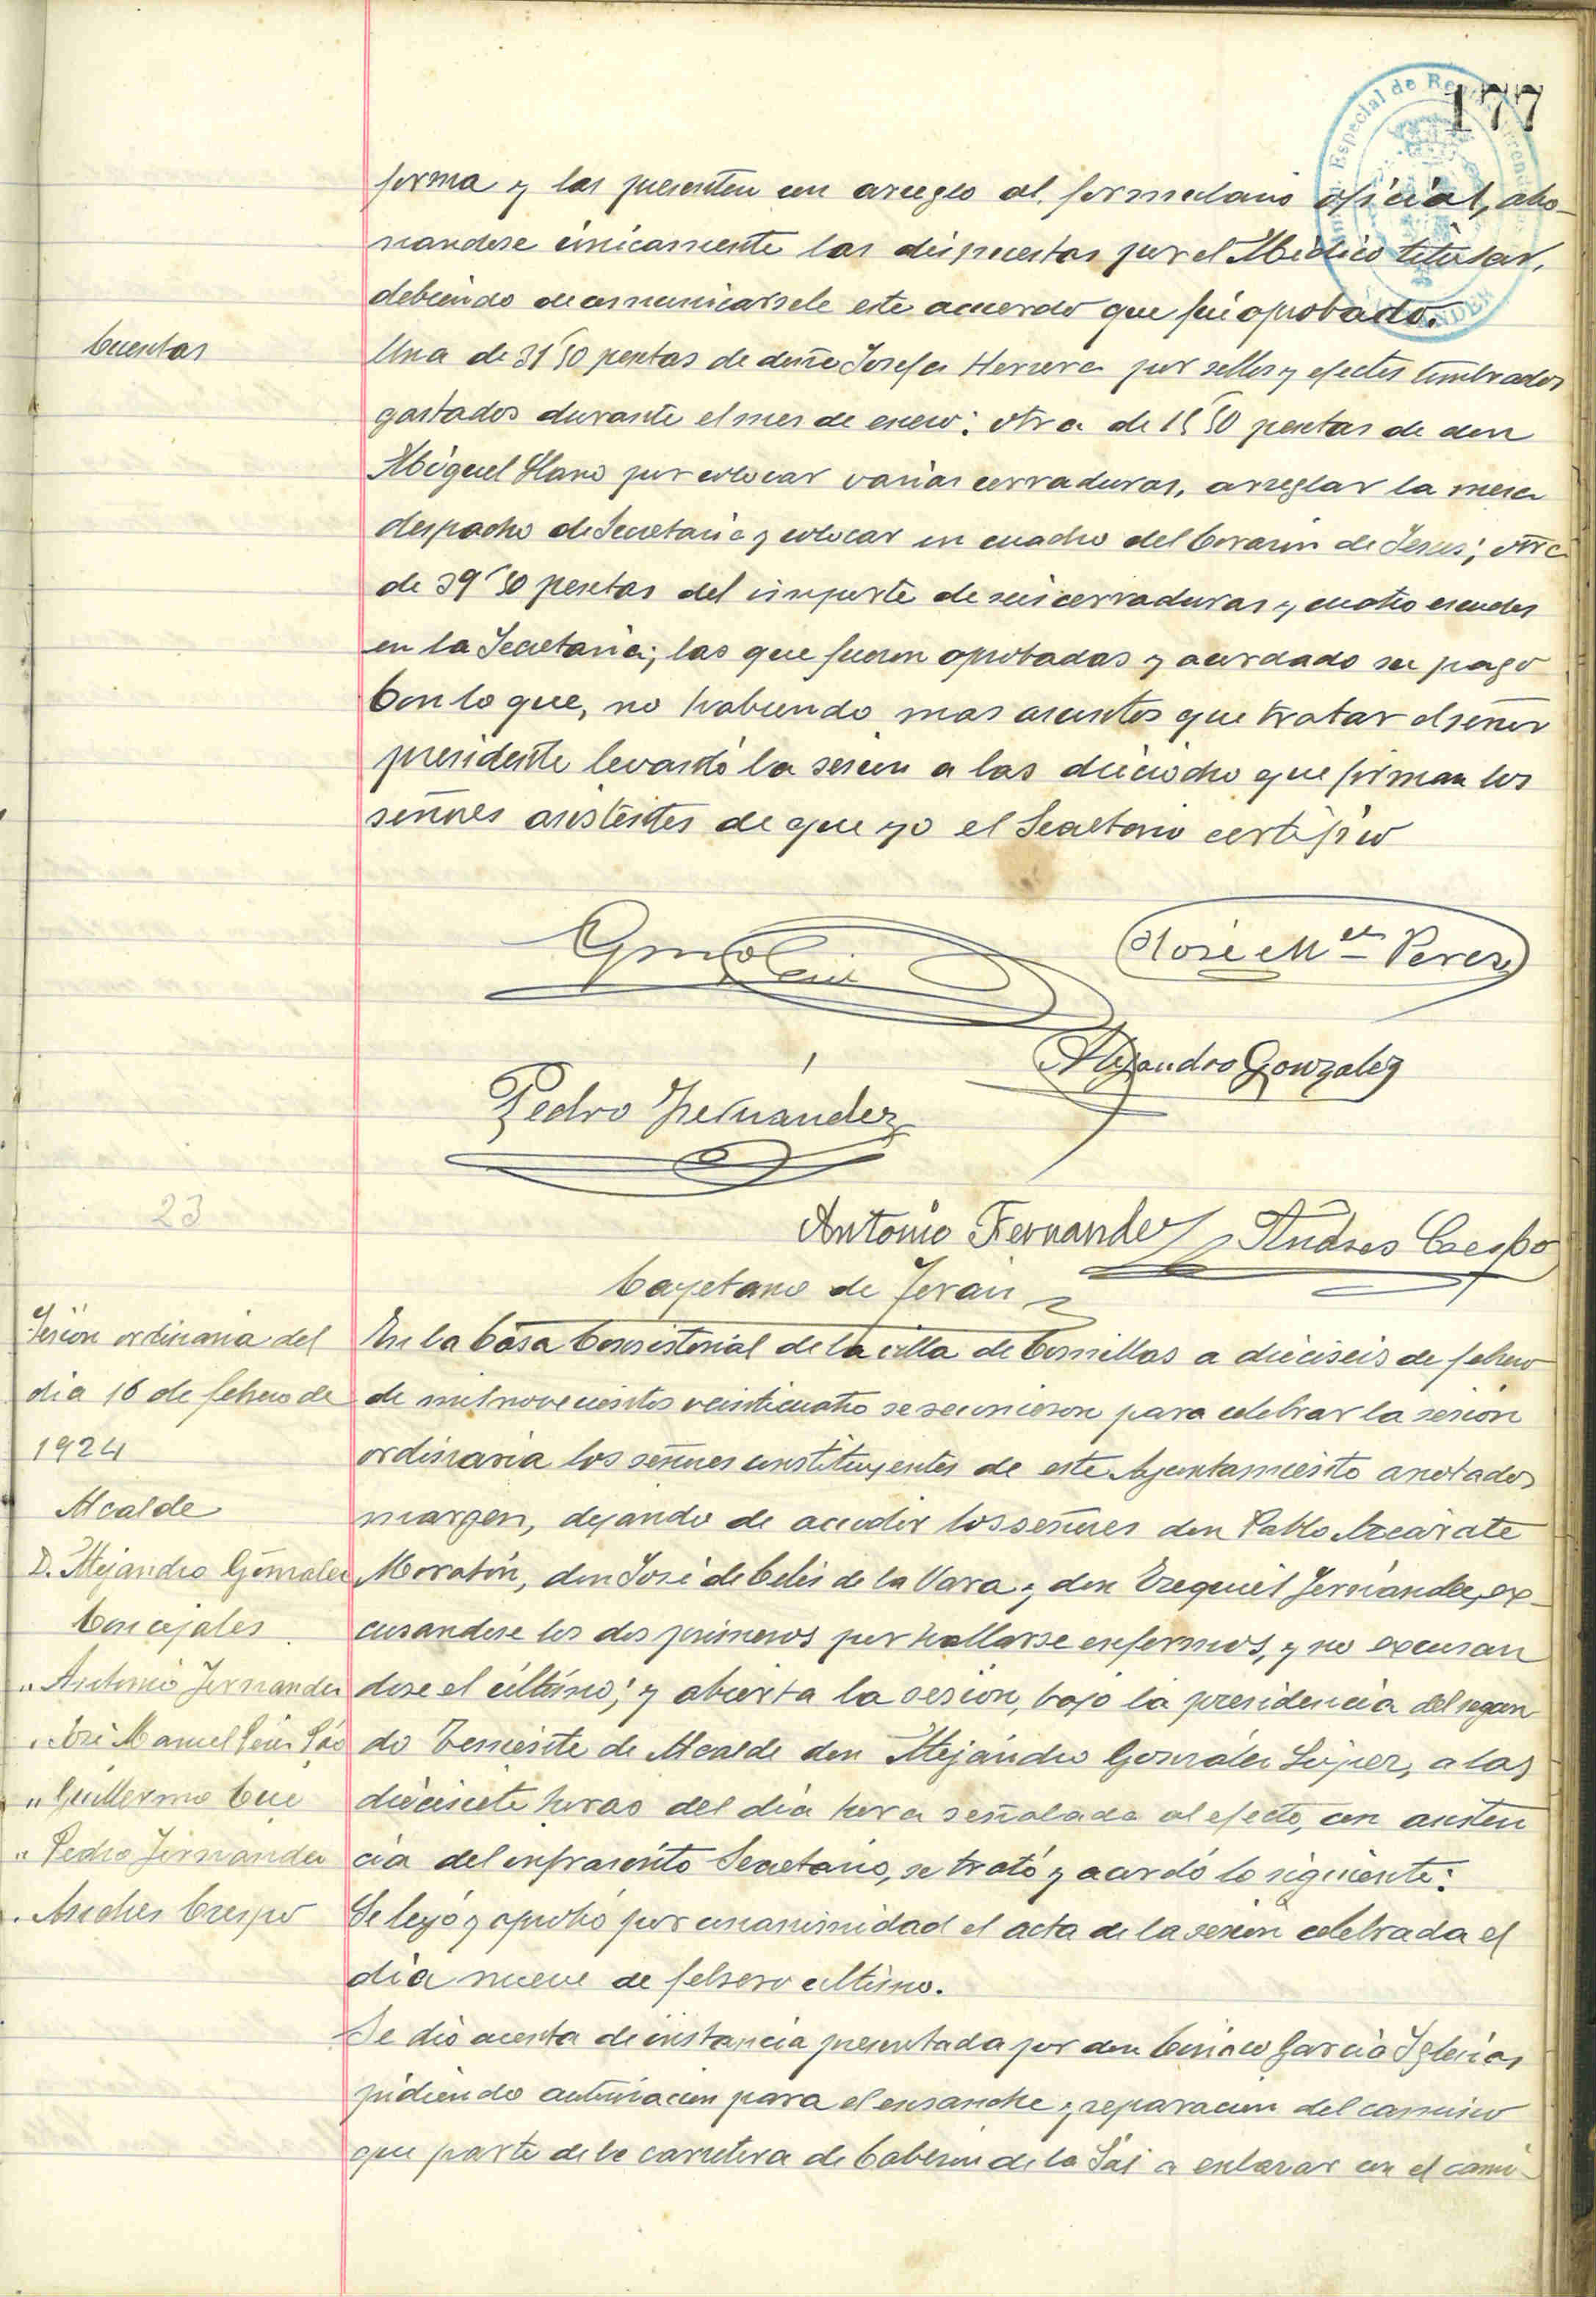 177
forma y las presenten con arreglo al formulario oficial, abo-
nandose únicamente las dispuestas por el Médico titular,
debiendo de comunicarsele este acuerdo que fué aprobado.
Cuentas
Una de 31'50 pesetas de doña Josefa Herrera por sellos y efectos timbrados
gastados durante el mes de enero; otra de 15'50 pesetas de don
Miguel Llano por colocar varias cerraduras, arreglar la mesa
despacho de Secretaria y colocar un cuadro del Corazón de Jesus; otra
de 39'50 pesetas del importe de seis cerraduras y cuatro escudos
en la Secretaria; las que fueron aprobadas y acordado su pago
Con lo que, no habiendo mas asuntos que tratar el señor
presidente levantó la sesion a las dieciocho que firman los
señores asistentes de que yo el Secretario certifico
José Mel Perez
Alejandro Gonzalez
Pedro Fernandez
23
Antonio Fernandez Andres Crespo
Cayetano de Teran
Sesión ordinaria del
dia 16 de febrero de
1924
Alcalde
D. Alejandro Gonzalez
Concejales
" Antonio Fernandez
" José Manuel Perez
" Guillermo Cue
" Pedro Fernandez
" Andres Crespo
En la Casa Consistorial de la villa de Comillas a dieciseis de febrero
de mil novecientos veinticuatro se reunieron para celebrar la sesion
ordinaria los señores constituyentes de este Ayuntamiento anotados
margen, dejando de acudir los señores don Pablo Azcárate
Moratón, don José de Celis de la Vara y don Ezequiel Fernandez, ex-
cusandose los dos primeros por hallarse enfermos, y no excusan
dose el último; y abierta la sesion, bajo la presidencia del segun
do Teniente de Alcalde don Alejandro Gonzalez López, a las
diecisiete horas del dia hora señalada al efecto, con asisten
cia del infrascrito Secretario, se trató y acordó lo siguiente:
Se leyó y aprobó por unanimidad el acta de la sesion celebrada el
dia nueve de febrero ultimo.
Se dió cuenta de instancia presentada por don Ciriaco Garcia Iglesias
pidiendo autorizacion para el ensanche y reparacion del camino
que parte de la carretera de Cabezon de la Sal a enlazar con el cami-